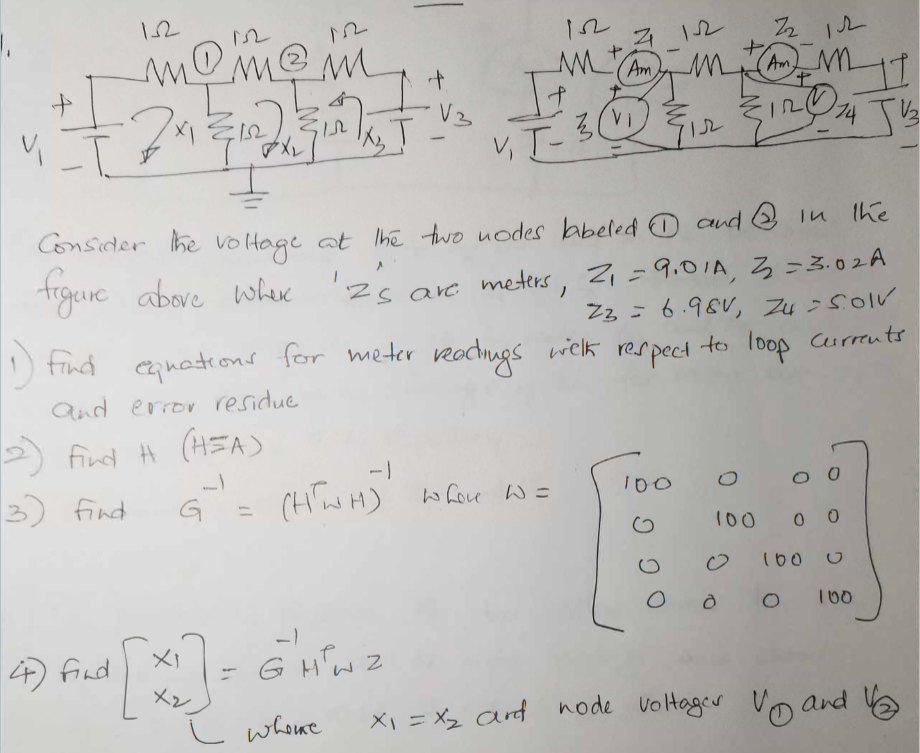 1.
1Ω 1Ω 1Ω
① ②
+ V1 -
x1 1Ω x2 1Ω x3
+ V3 -
1Ω + Z1 - 1Ω + Z2 - 1Ω
Am Am
V1 + - Z3 + V1 - 1Ω 1Ω + V - Z4 + V3 -
Consider the voltage at the two nodes labeled ① and ② in the
figure above where 'z's are meters, Z1 = 9.01A, Z2 = 3.02A
Z3 = 6.98V, Z4 = 5.01V
1) find equations for meter readings with respect to loop currents
and error residue
2) find H (H≡A)
3) find G^-1 = (H^T W H)^-1 where W = [100 0 0 0
0 100 0 0
0 0 100 0
0 0 0 100]
4) find [x1
x2] = G^-1 H^T W Z
where x1 = x2 and node voltages V① and V②